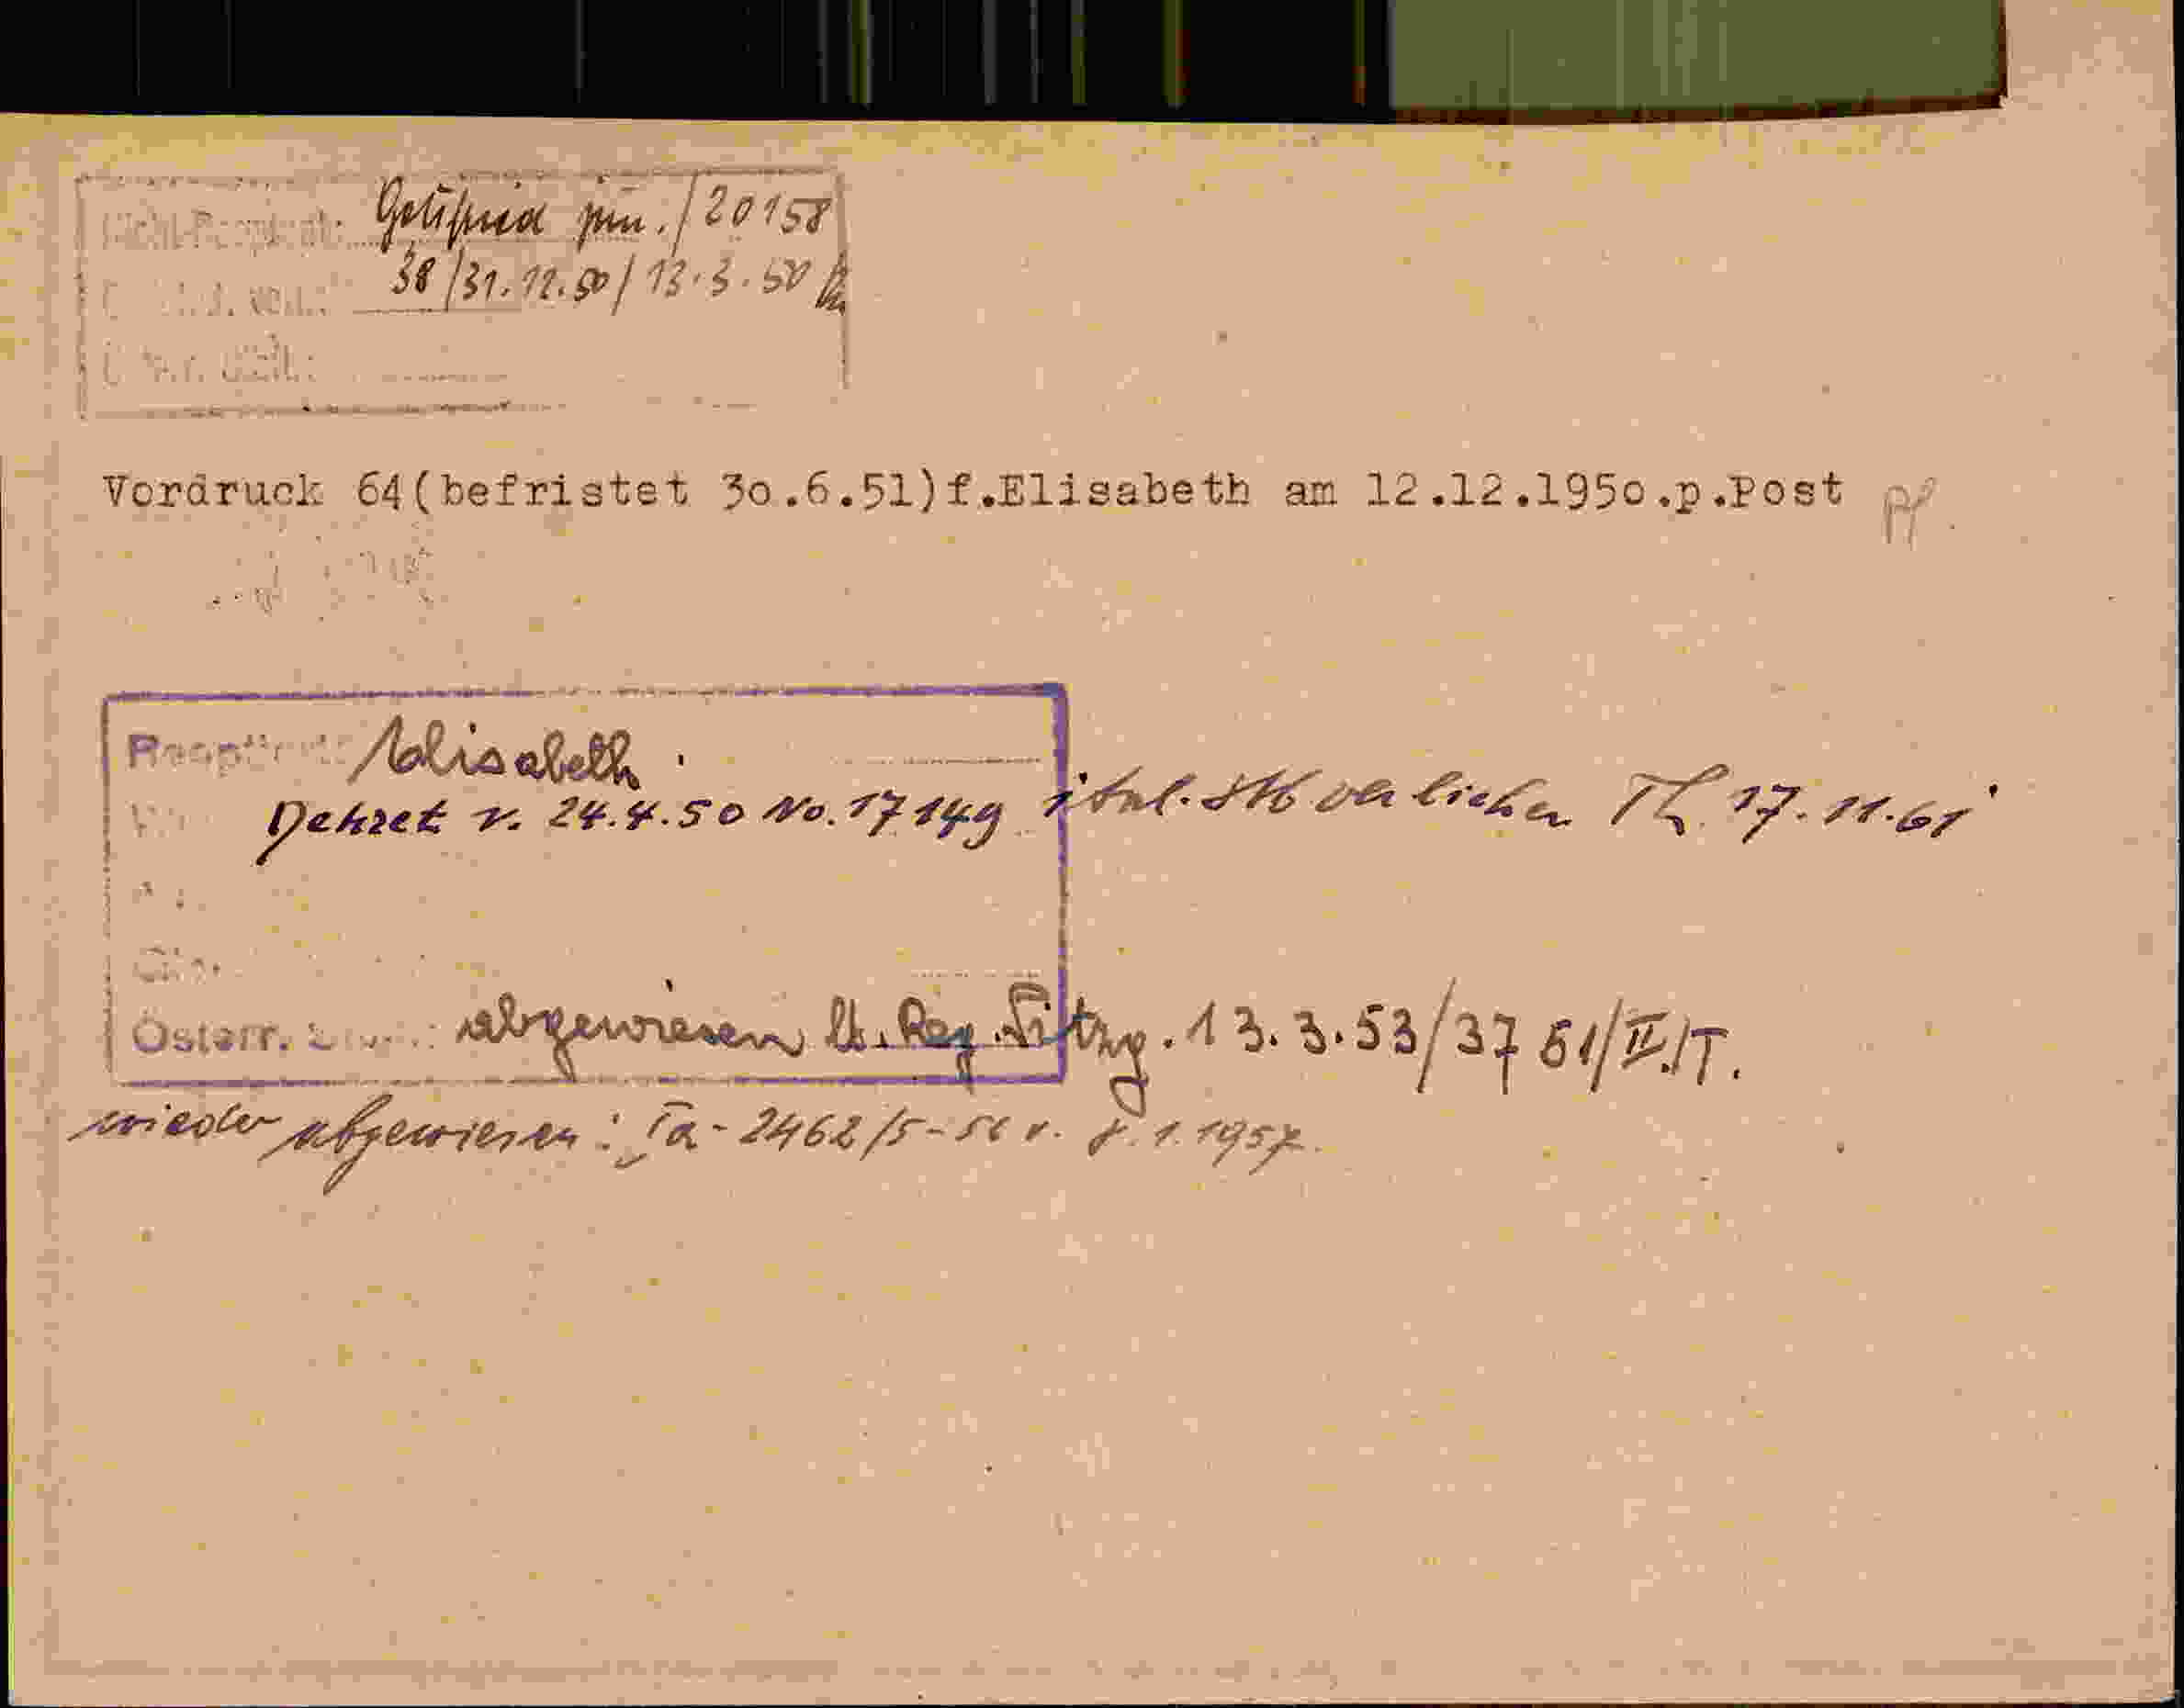 Nicht-Reoptant: Gottfried jun. / 20158
38/31.12.50/13.3.50
Vordruck 64(befristet 30.6.51)f.Elisabeth am 12.12.1950.p.Post
Elisabeth
Dekret v. 24.4.50 No. 17149 ital. Stb verliehen Th. 17.11.61
Österr. abgewiesen lt. Reg. Sitzg. 13.3.53/37 51/II./T.
wieder abgewiesen: Ia - 2462/5-56 v. 8.1.1957.